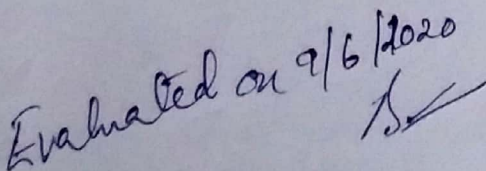 Evaluated on 9/6/2020